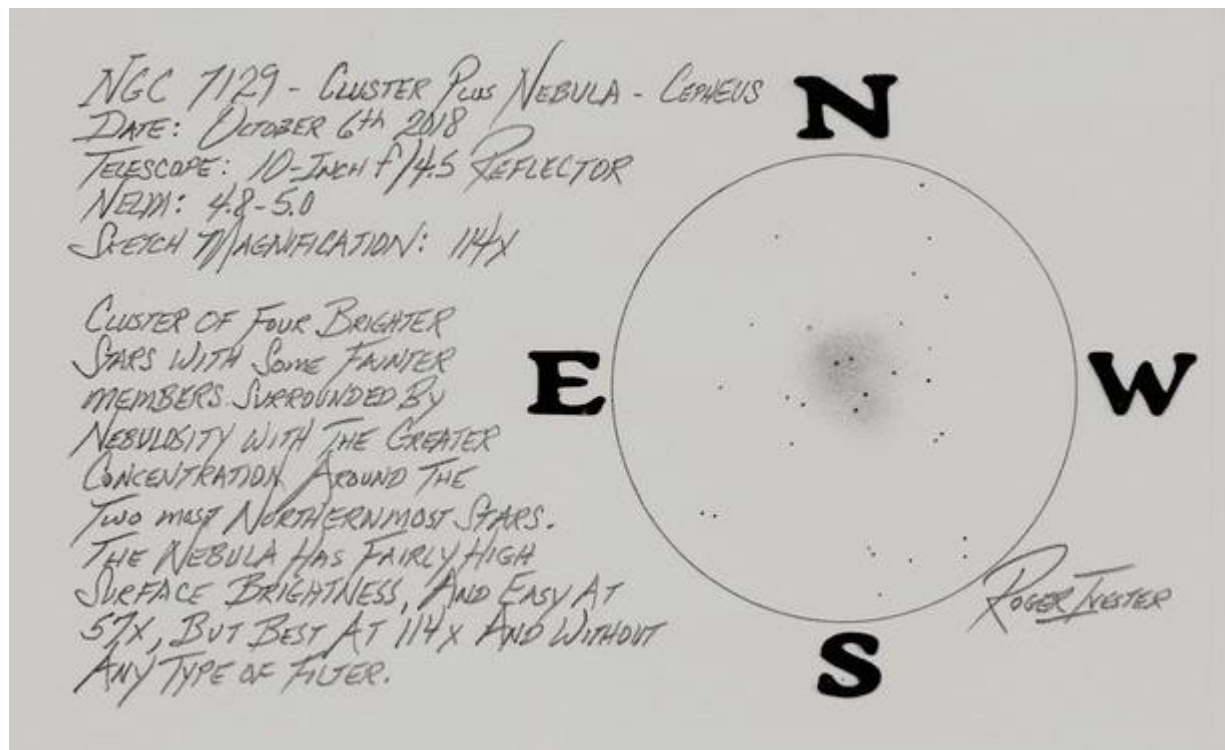 NGC 7129 - CLUSTER PLUS NEBULA - CEPHEUS
DATE: OCTOBER 6th 2018
TELESCOPE: 10-INCH f/4.5 REFLECTOR
NELM: 4.8-5.0
SKETCH MAGNIFICATION: 114X
CLUSTER OF FOUR BRIGHTER
STARS WITH SOME FAINTER
MEMBERS SURROUNDED BY
NEBULOSITY WITH THE GREATER
CONCENTRATION AROUND THE
TWO MOST NORTHERNMOST STARS.
THE NEBULA HAS FAIRLY HIGH
SURFACE BRIGHTNESS, AND EASY AT
57X, BUT BEST AT 114X AND WITHOUT
ANY TYPE OF FILTER.
N
E
W
S
ROGER IVESTER